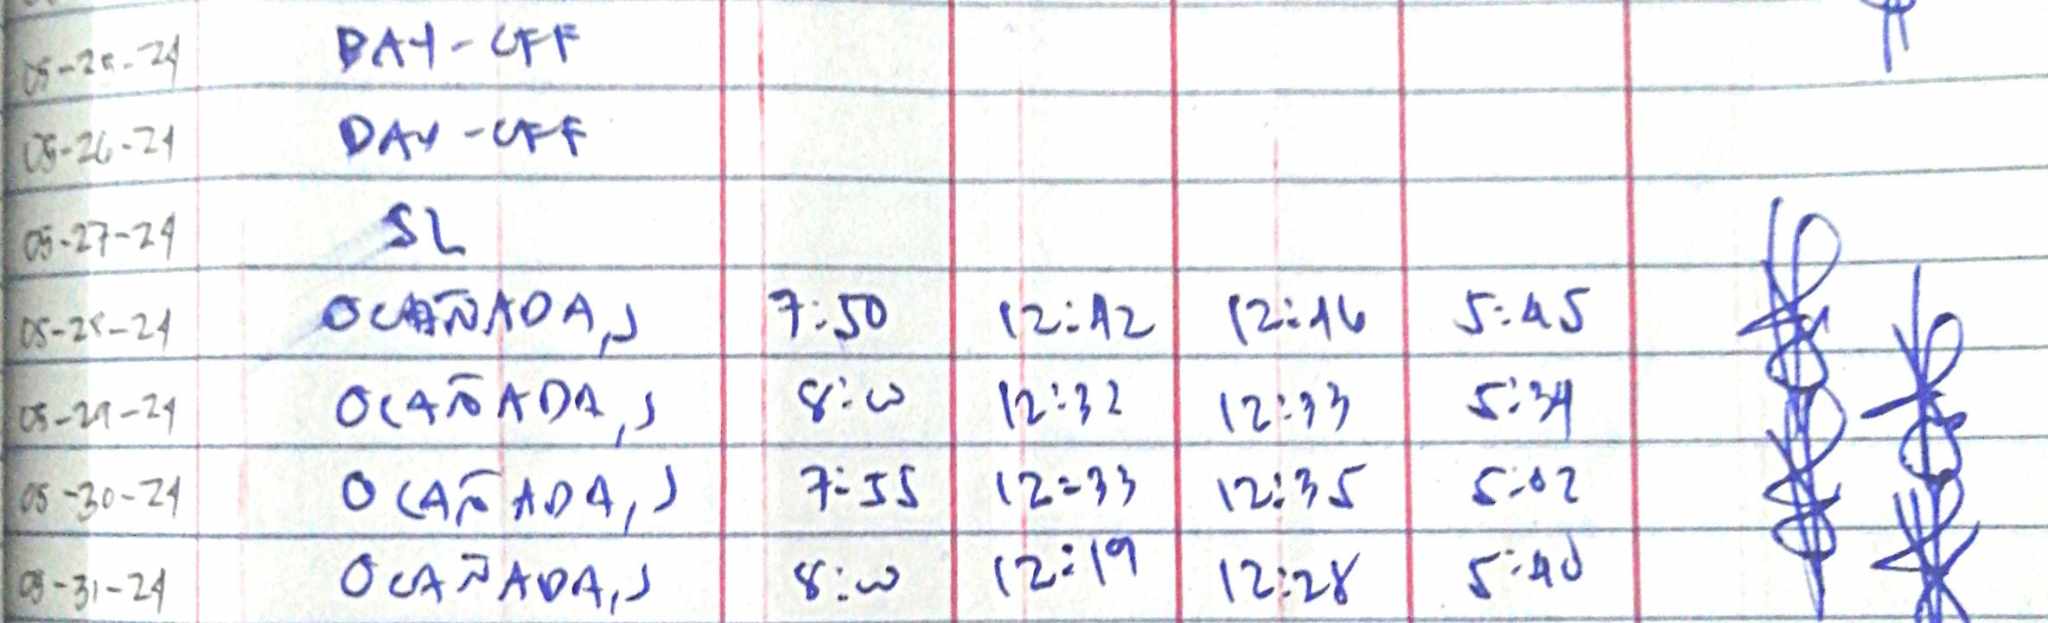 05-25-24 DAY-OFF
05-26-24 DAY-OFF
05-27-24 SL
05-28-24 OCAÑADA, J 7:50 12:42 12:46 5:45
05-29-24 OCAÑADA, J 8:00 12:32 12:33 5:34
05-30-24 OCAÑADA, J 7:55 12:33 12:35 5:02
05-31-24 OCAÑADA, J 8:00 12:19 12:28 5:40